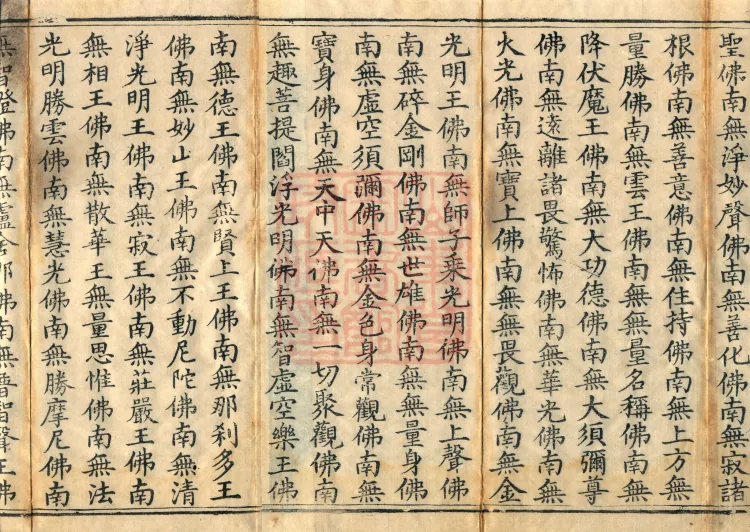 聖佛南無淨妙聲佛南無善化佛南無寂諸
根佛南無善意佛南無住持佛南無上方無
量勝佛南無雲王佛南無無量名稱佛南無
降伏魔王佛南無大功德佛南無大須彌尊
佛南無遠離諸畏驚怖佛南無華光佛南無
火光佛南無寶上佛南無無畏觀佛南無金
光明王佛南無師子乘光明佛南無上聲佛
南無碎金剛佛南無世雄佛南無無量身佛
南無虛空須彌佛南無金色身常觀佛南無
寶身佛南無天中天佛南無一切聚觀佛南
無趣菩提閻浮光明佛南無智虛空樂王佛
南無德王佛南無賢上王佛南無那剎多王
佛南無妙山王佛南無不動尼陀佛南無清
淨光明王佛南無寂王佛南無莊嚴王佛南
無相王佛南無散華王無量思惟佛南無法
光明勝雲佛南無慧光佛南無勝摩尼佛南
無智佛南無盧舍那佛南無普智聲王佛